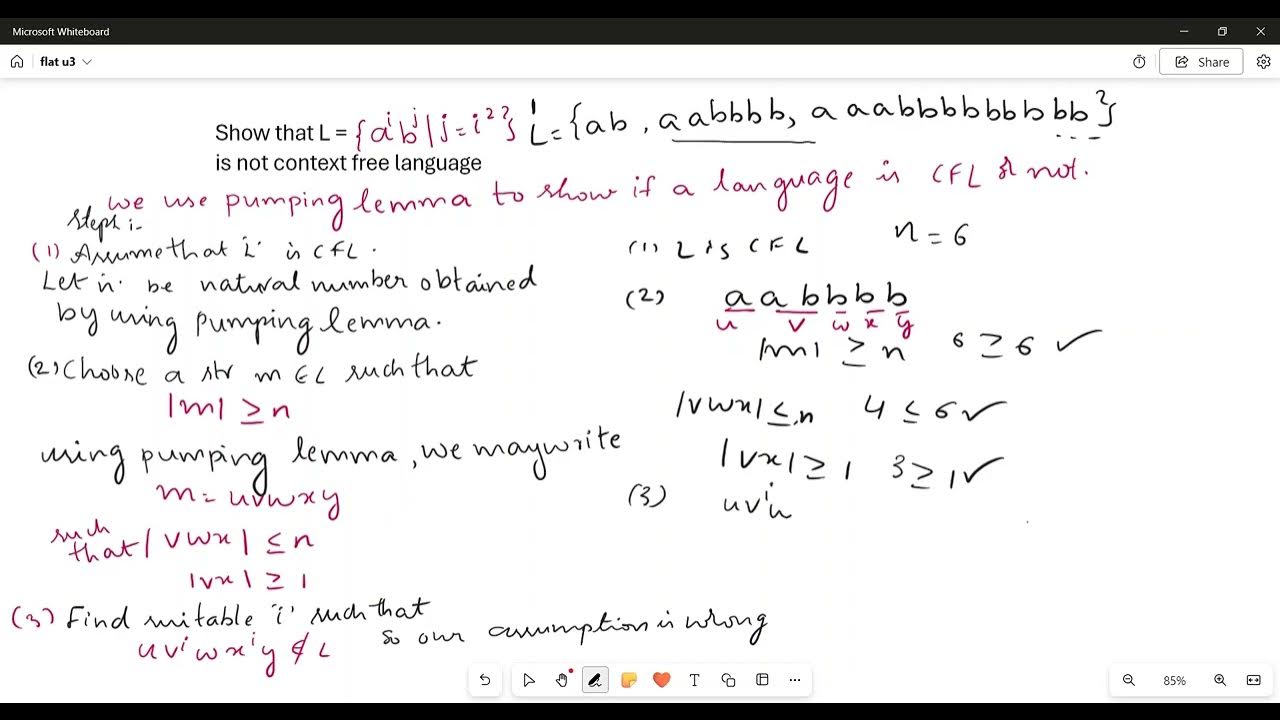 Microsoft Whiteboard
flat u3
Share
Show that L = {aⁱbʲ | j = i²} L = {ab, aabbbb, aaabbbbbbbbb ...}
is not context free language
we use pumping lemma to show if a language is CFL or not.
Steps :-
(1) Assume that 'L' is CFL.
Let 'n' be natural number obtained
by using pumping lemma.
(2) Choose a str m ∈ L such that
|m| ≥ n
using pumping lemma, we may write
m = uvwxy
such that |vwx| ≤ n
|vx| ≥ 1
(3) Find suitable 'i' such that
uvⁱwxⁱy ∉ L so our assumption is wrong
(1) L is CFL n = 6
(2) aabbbb
u v w x y
|m| ≥ n 6 ≥ 6 ✓
|vwx| ≤ n 4 ≤ 6 ✓
|vx| ≥ 1 3 ≥ 1 ✓
(3) uvⁱw
85%